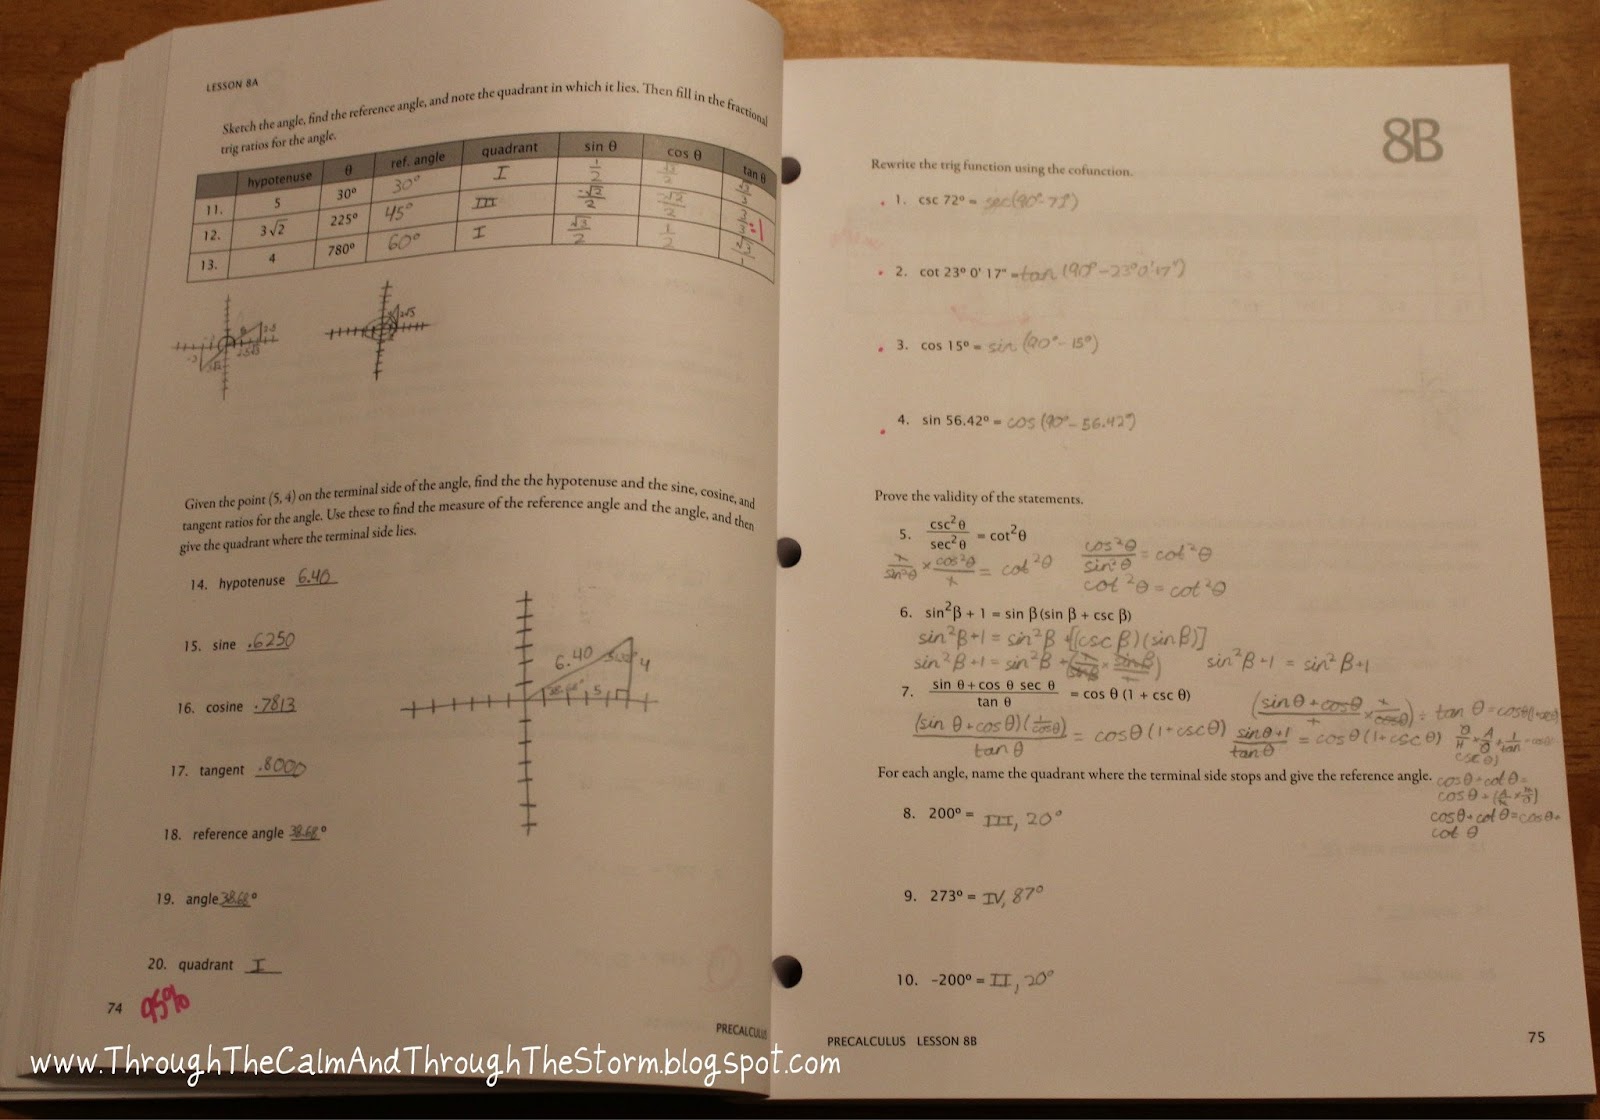 LESSON 8A
Sketch the angle, find the reference angle, and note the quadrant in which it lies. Then fill in the fractional
trig ratios for the angle.
hypotenuse θ ref. angle quadrant sin θ cos θ tan θ
11. 5 30º 30° I 1/2 √3/2 √3/3
12. 3√2 225º 45° III -√2/2 -√2/2 2/2 =1
13. 4 780º 60° I √3/2 1/2 √3/1
Given the point (5, 4) on the terminal side of the angle, find the the hypotenuse and the sine, cosine, and
tangent ratios for the angle. Use these to find the measure of the reference angle and the angle, and then
give the quadrant where the terminal side lies.
14. hypotenuse 6.40
15. sine .6250
16. cosine .7813
17. tangent .8000
18. reference angle 38.68º
19. angle 38.68º
20. quadrant I
6.40
4
5
38.68°
74
95%
PRECALCULUS
8B
Rewrite the trig function using the cofunction.
1. csc 72º = sec(90°-72°)
2. cot 23º 0' 17" = tan (90°-23°0'17")
3. cos 15º = sin (90°-15°)
4. sin 56.42º = cos (90°-56.42°)
Prove the validity of the statements.
5. csc²θ/sec²θ = cot²θ
1/sin²θ × cos²θ/1 = cot²θ
cos²θ/sin²θ = cot²θ
cot²θ = cot²θ
6. sin²β + 1 = sin β(sin β + csc β)
sin²β+1 = sin²β +[(csc β)(sin β)]
sin²β+1 = sin²β +(1/sinβ × sinβ/1)
sin²β+1 = sin²β+1
7. sin θ+cos θ sec θ/tan θ = cos θ (1 + csc θ)
(sin θ+cosθ)(1/cosθ)/tanθ = cosθ(1+cscθ)
sinθ+1/tanθ = cosθ(1+cscθ)
For each angle, name the quadrant where the terminal side stops and give the reference angle.
cosθ+cotθ=
cosθ+cotθ=cosθ+
cot θ
8. 200º = III, 20°
9. 273º = IV, 87°
10. -200º = II, 20°
PRECALCULUS LESSON 8B
75
www.ThroughTheCalmAndThroughTheStorm.blogspot.com